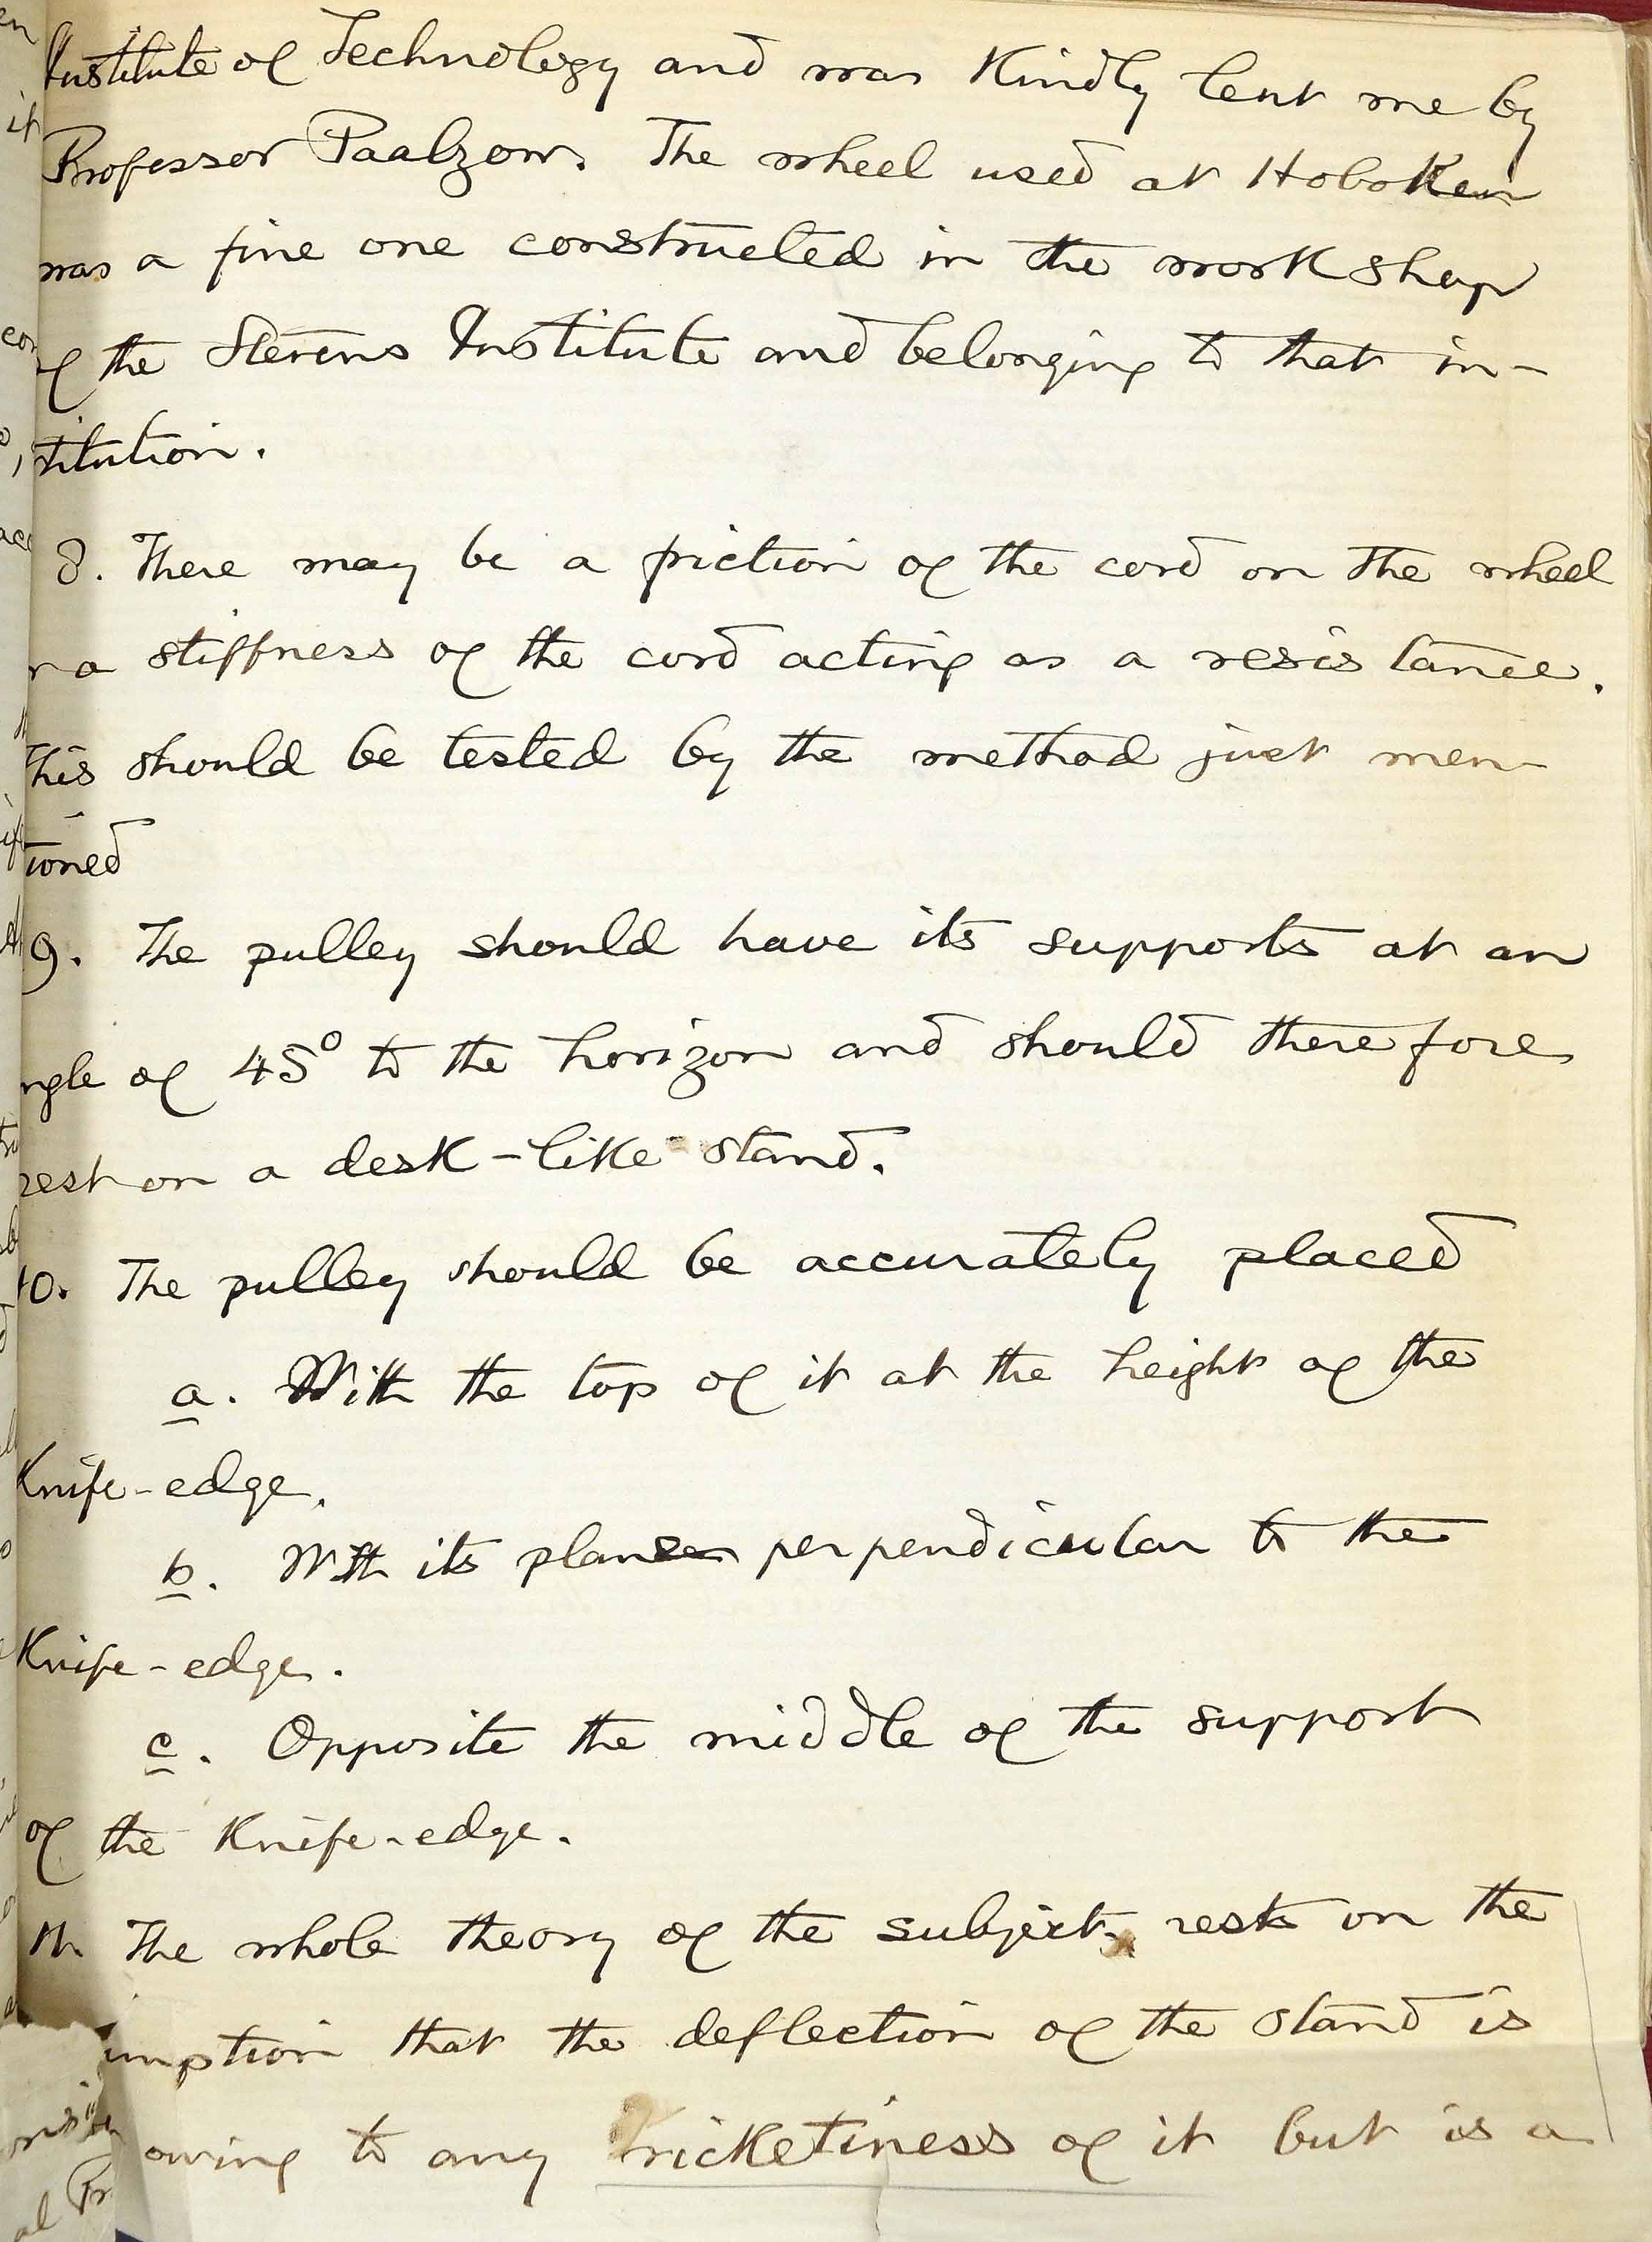 Institute of Technology and was kindly lent me by
Professor Paalzow. The wheel used at Hoboken
was a fine one constructed in the workshop
of the Stevens Institute and belonging to that in-
titution.
8. There may be a friction of the cord on the wheel
r a stiffness of the cord acting as a resistance.
This should be tested by the method just men-
tioned
9. The pulley should have its supports at an
ngle of 45° to the horizon and should therefore
rest on a desk-like stand.
10. The pulley should be accurately placed
a. With the top of it at the height of the
Knife-edge.
b. With its plane perpendicular to the
Knife-edge.
c. Opposite the middle of the support
of the Knife-edge.
11. The whole theory of the subject rests on the
umption that the deflection of the stand is
owing to any ricketiness of it but is a